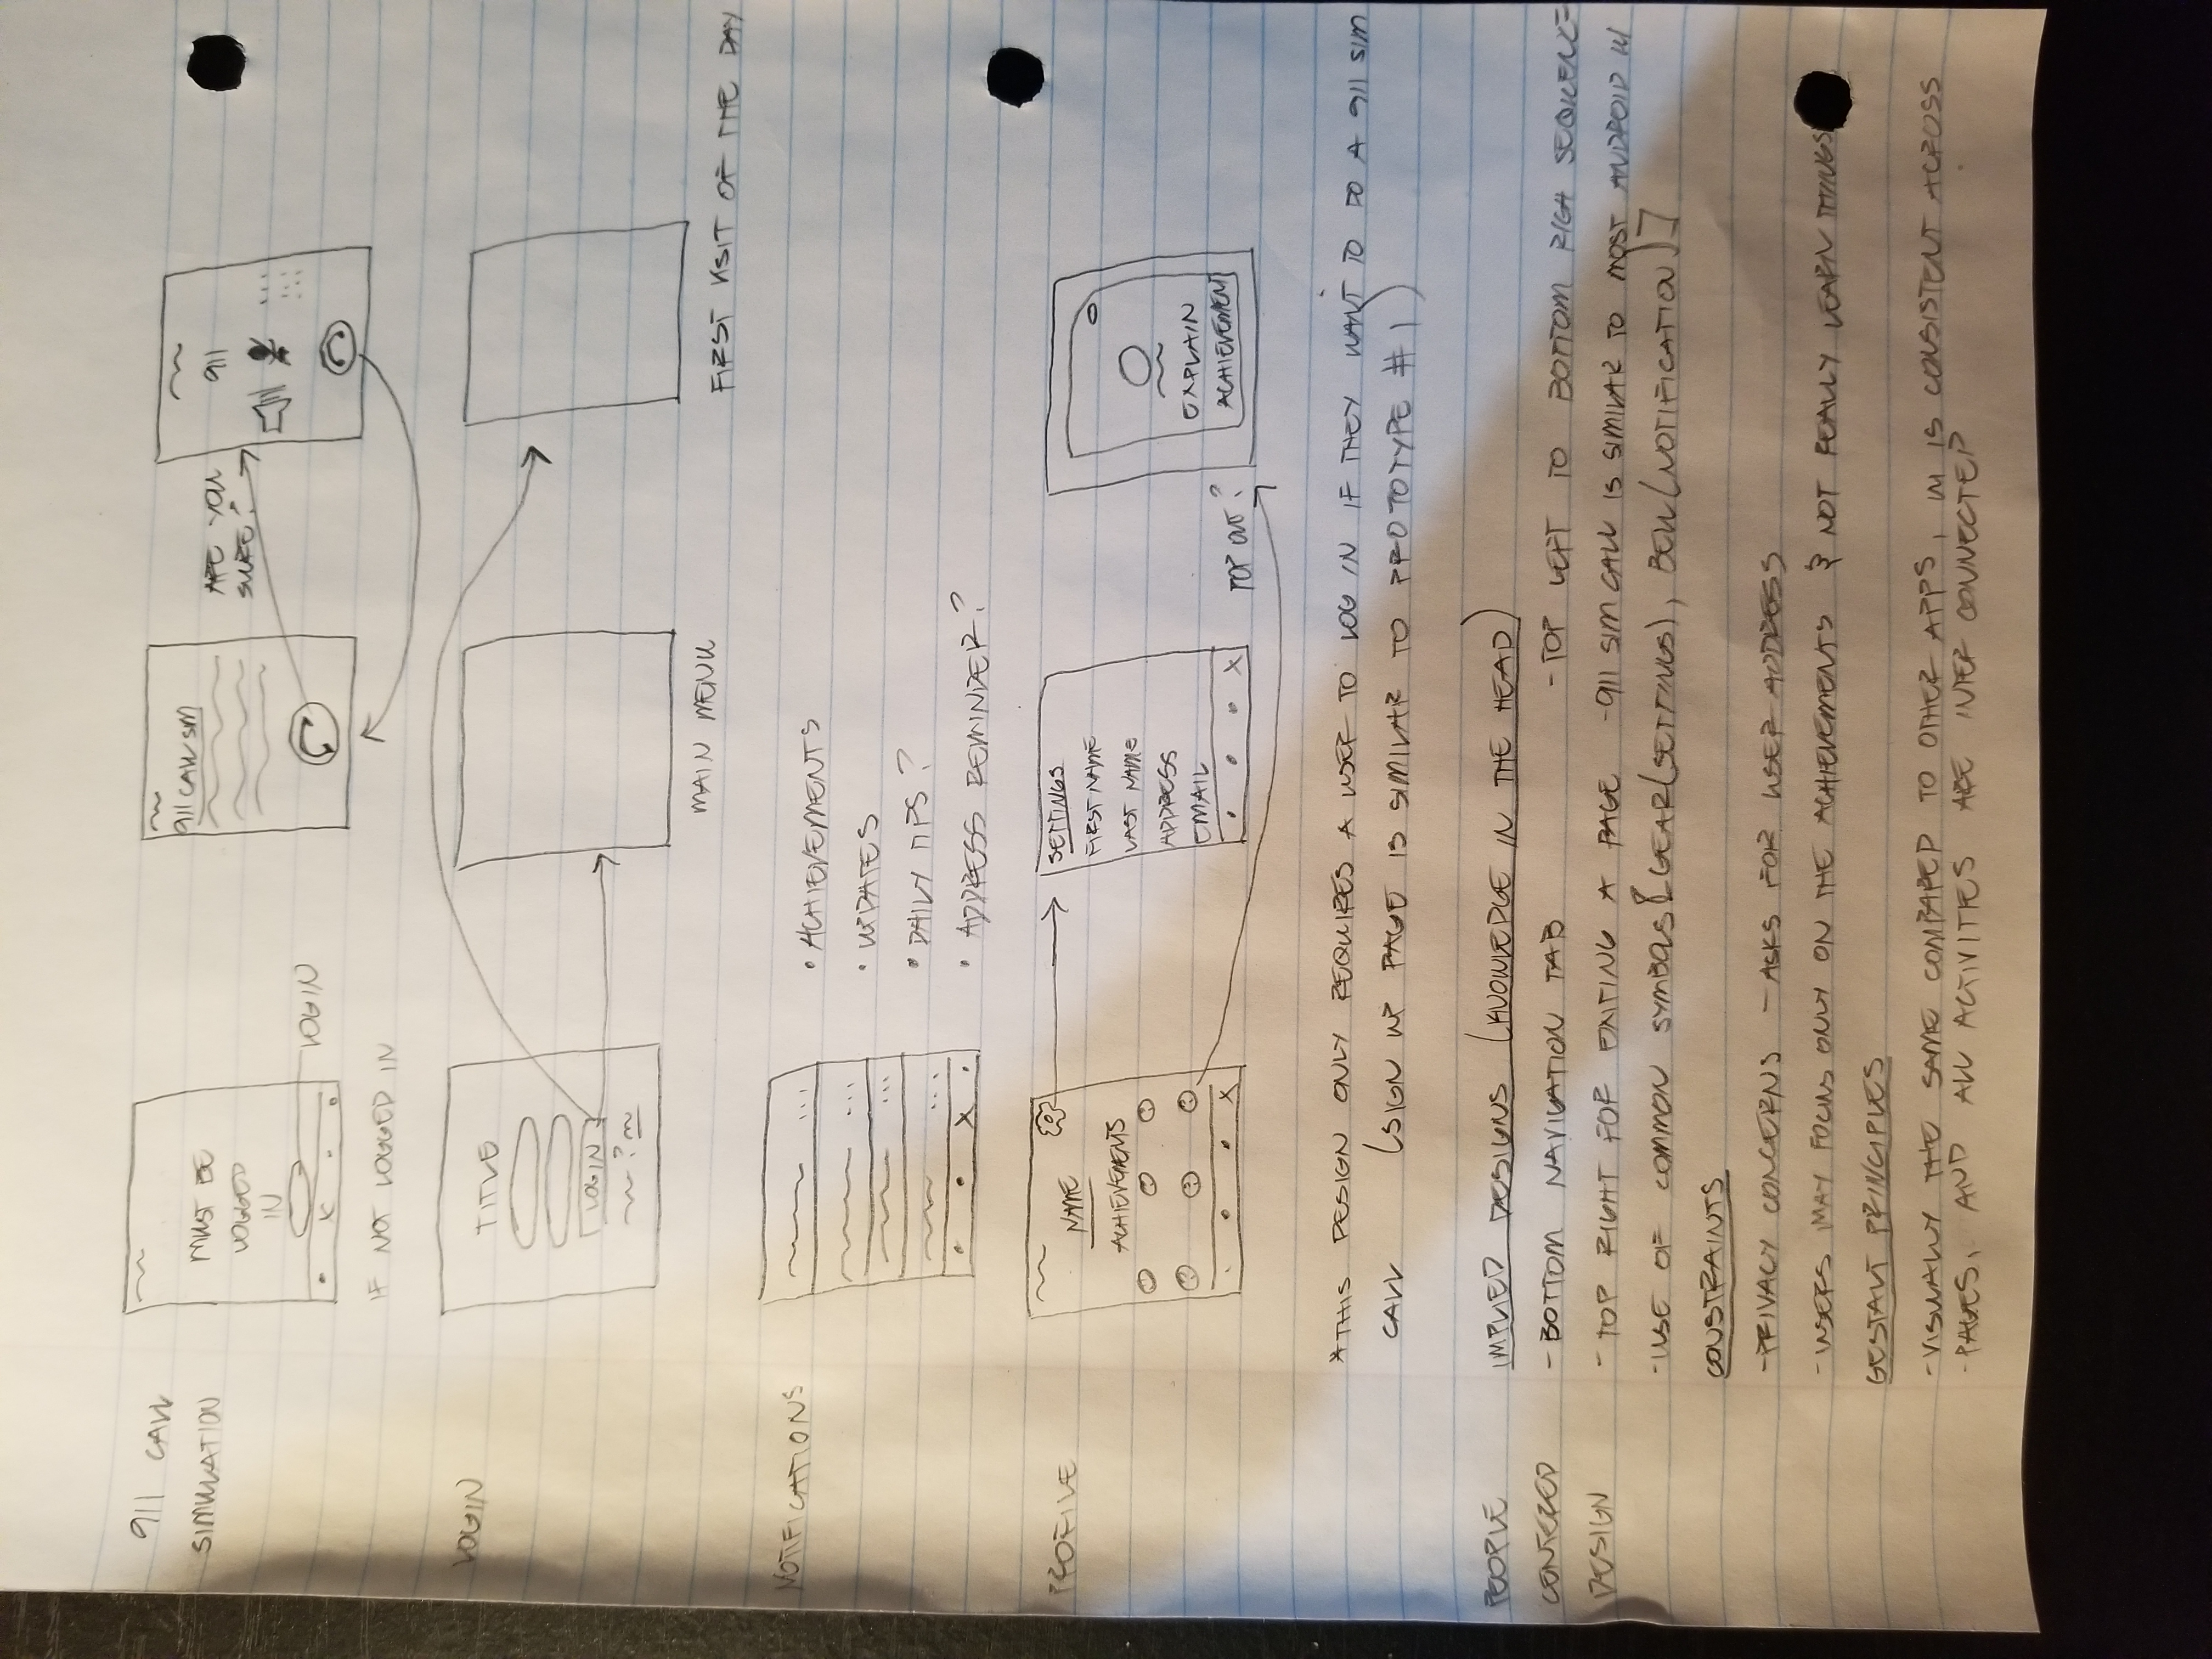 911 CALL
SIMULATION
MUST BE
LOGGED
IN
LOGIN
IF NOT LOGGED IN
911 CALL SIM
ARE YOU
SURE?
911
LOGIN
TITLE
LOGIN
?
MAIN MENU
FIRST VISIT OF THE DAY
NOTIFICATIONS
• ACHIEVEMENTS
• UPDATES
• DAILY TIPS?
• ADDRESS REMINDER?
PROFILE
NAME
ACHIEVEMENTS
SETTINGS
FIRST NAME
LAST NAME
ADDRESS
EMAIL
POP OUT?
EXPLAIN
ACHIEVEMENT
*THIS DESIGN ONLY REQUIRES A USER TO LOG IN IF THEY WANT TO DO A 911 SIM
CALL (SIGN UP PAGE IS SIMILAR TO PROTOTYPE #1)
PEOPLE
CENTERED
DESIGN
IMPLIED DESIGNS (KNOWLEDGE IN THE HEAD)
- BOTTOM NAVIGATION TAB - TOP LEFT TO BOTTOM RIGH SEQUENCE
- TOP RIGHT FOR EXITING A PAGE - 911 SIM CALL IS SIMILAR TO MOST ANDROID UI
- USE OF COMMON SYMBOLS [GEAR(SETTINGS), BELL(NOTIFICATION)]
CONSTRAINTS
- PRIVACY CONCERNS - ASKS FOR USER ADDRESS
- USERS MAY FOCUS ONLY ON THE ACHIEVEMENTS & NOT REALLY LEARN THINGS
GESTALT PRINCIPLES
- VISUALLY THE SAME COMPARED TO OTHER APPS, UI IS CONSISTENT ACROSS
- PAGES, AND ALL ACTIVITIES ARE INTER CONNECTED